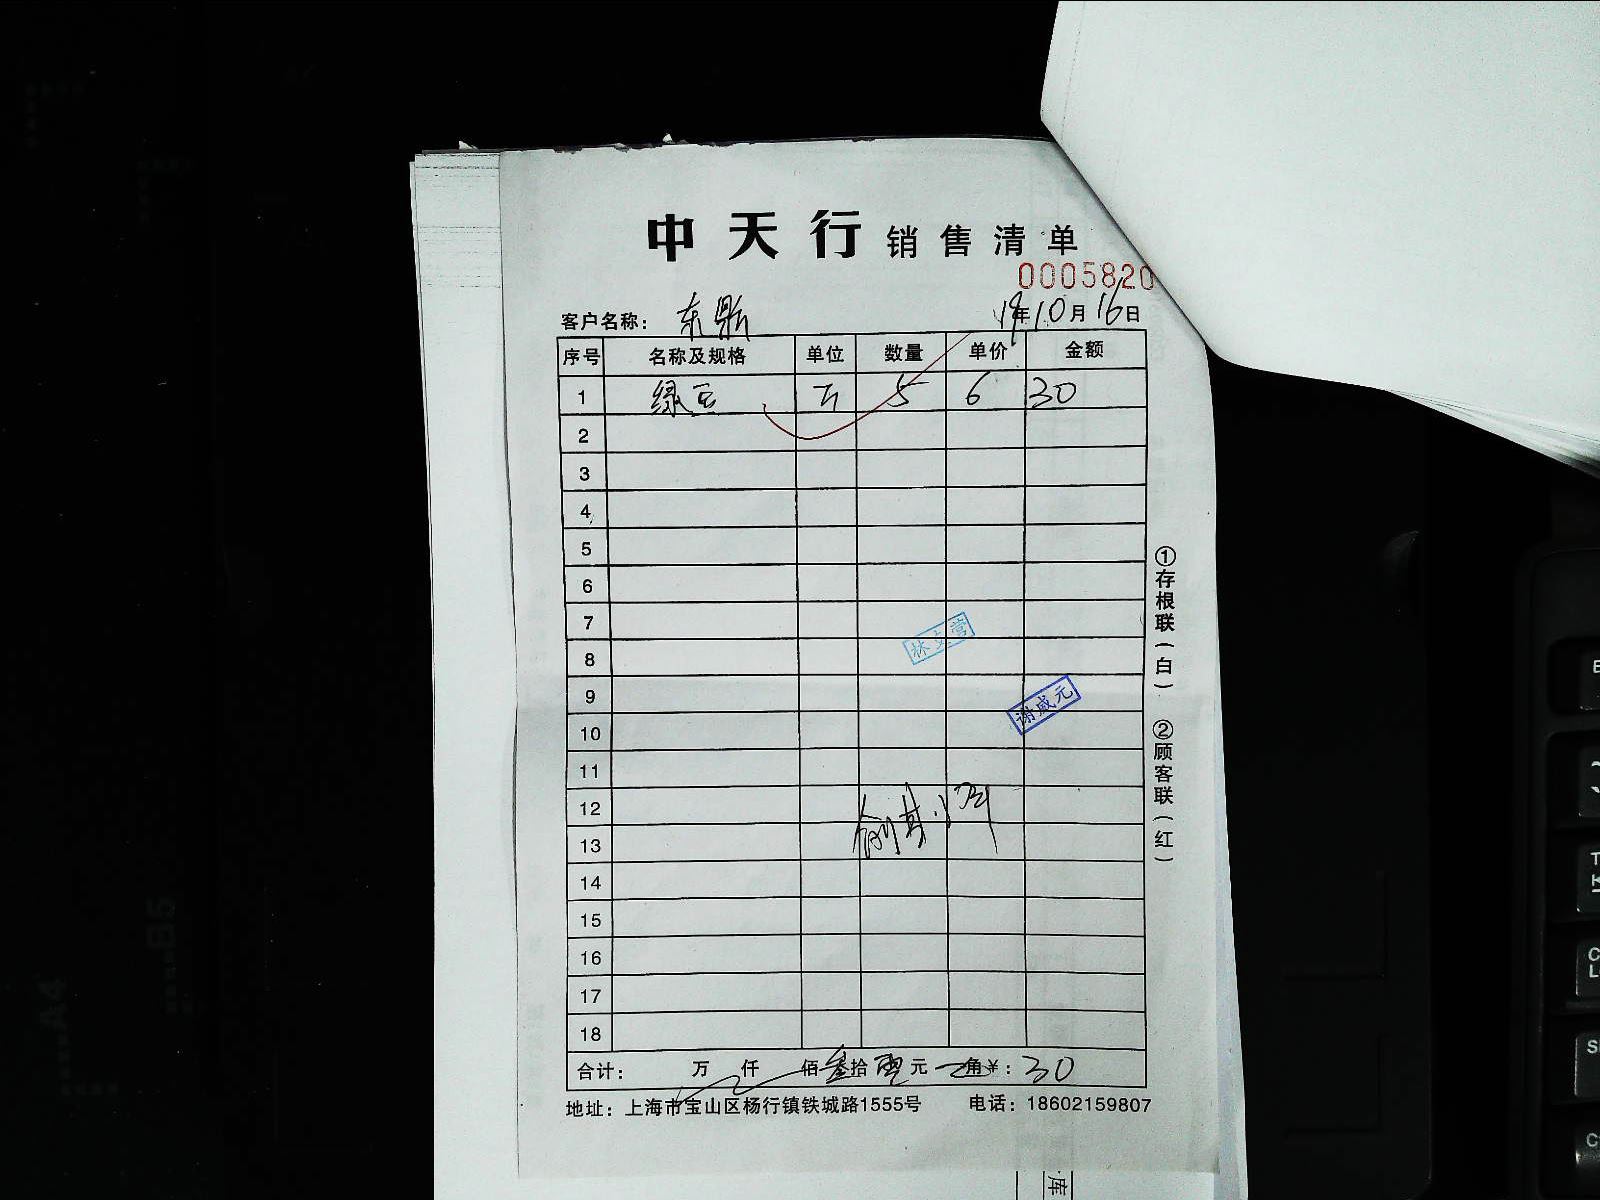 中天行 销售清单
0005820
客户名称： 东鼎 19年10月16日
序号 名称及规格 单位 数量 单价 金额
1 绿豆 斤 5 6 30
2
3
4
5
6
7
8
林 营
9
谢威元
10
11
12
13
14
15
16
17
18
合计： 万 仟 佰 叁拾零元 角 ¥：30
地址：上海市宝山区杨行镇铁城路1555号 电话：18602159807
①存根联（白） ②顾客联（红）
A4
B5
库